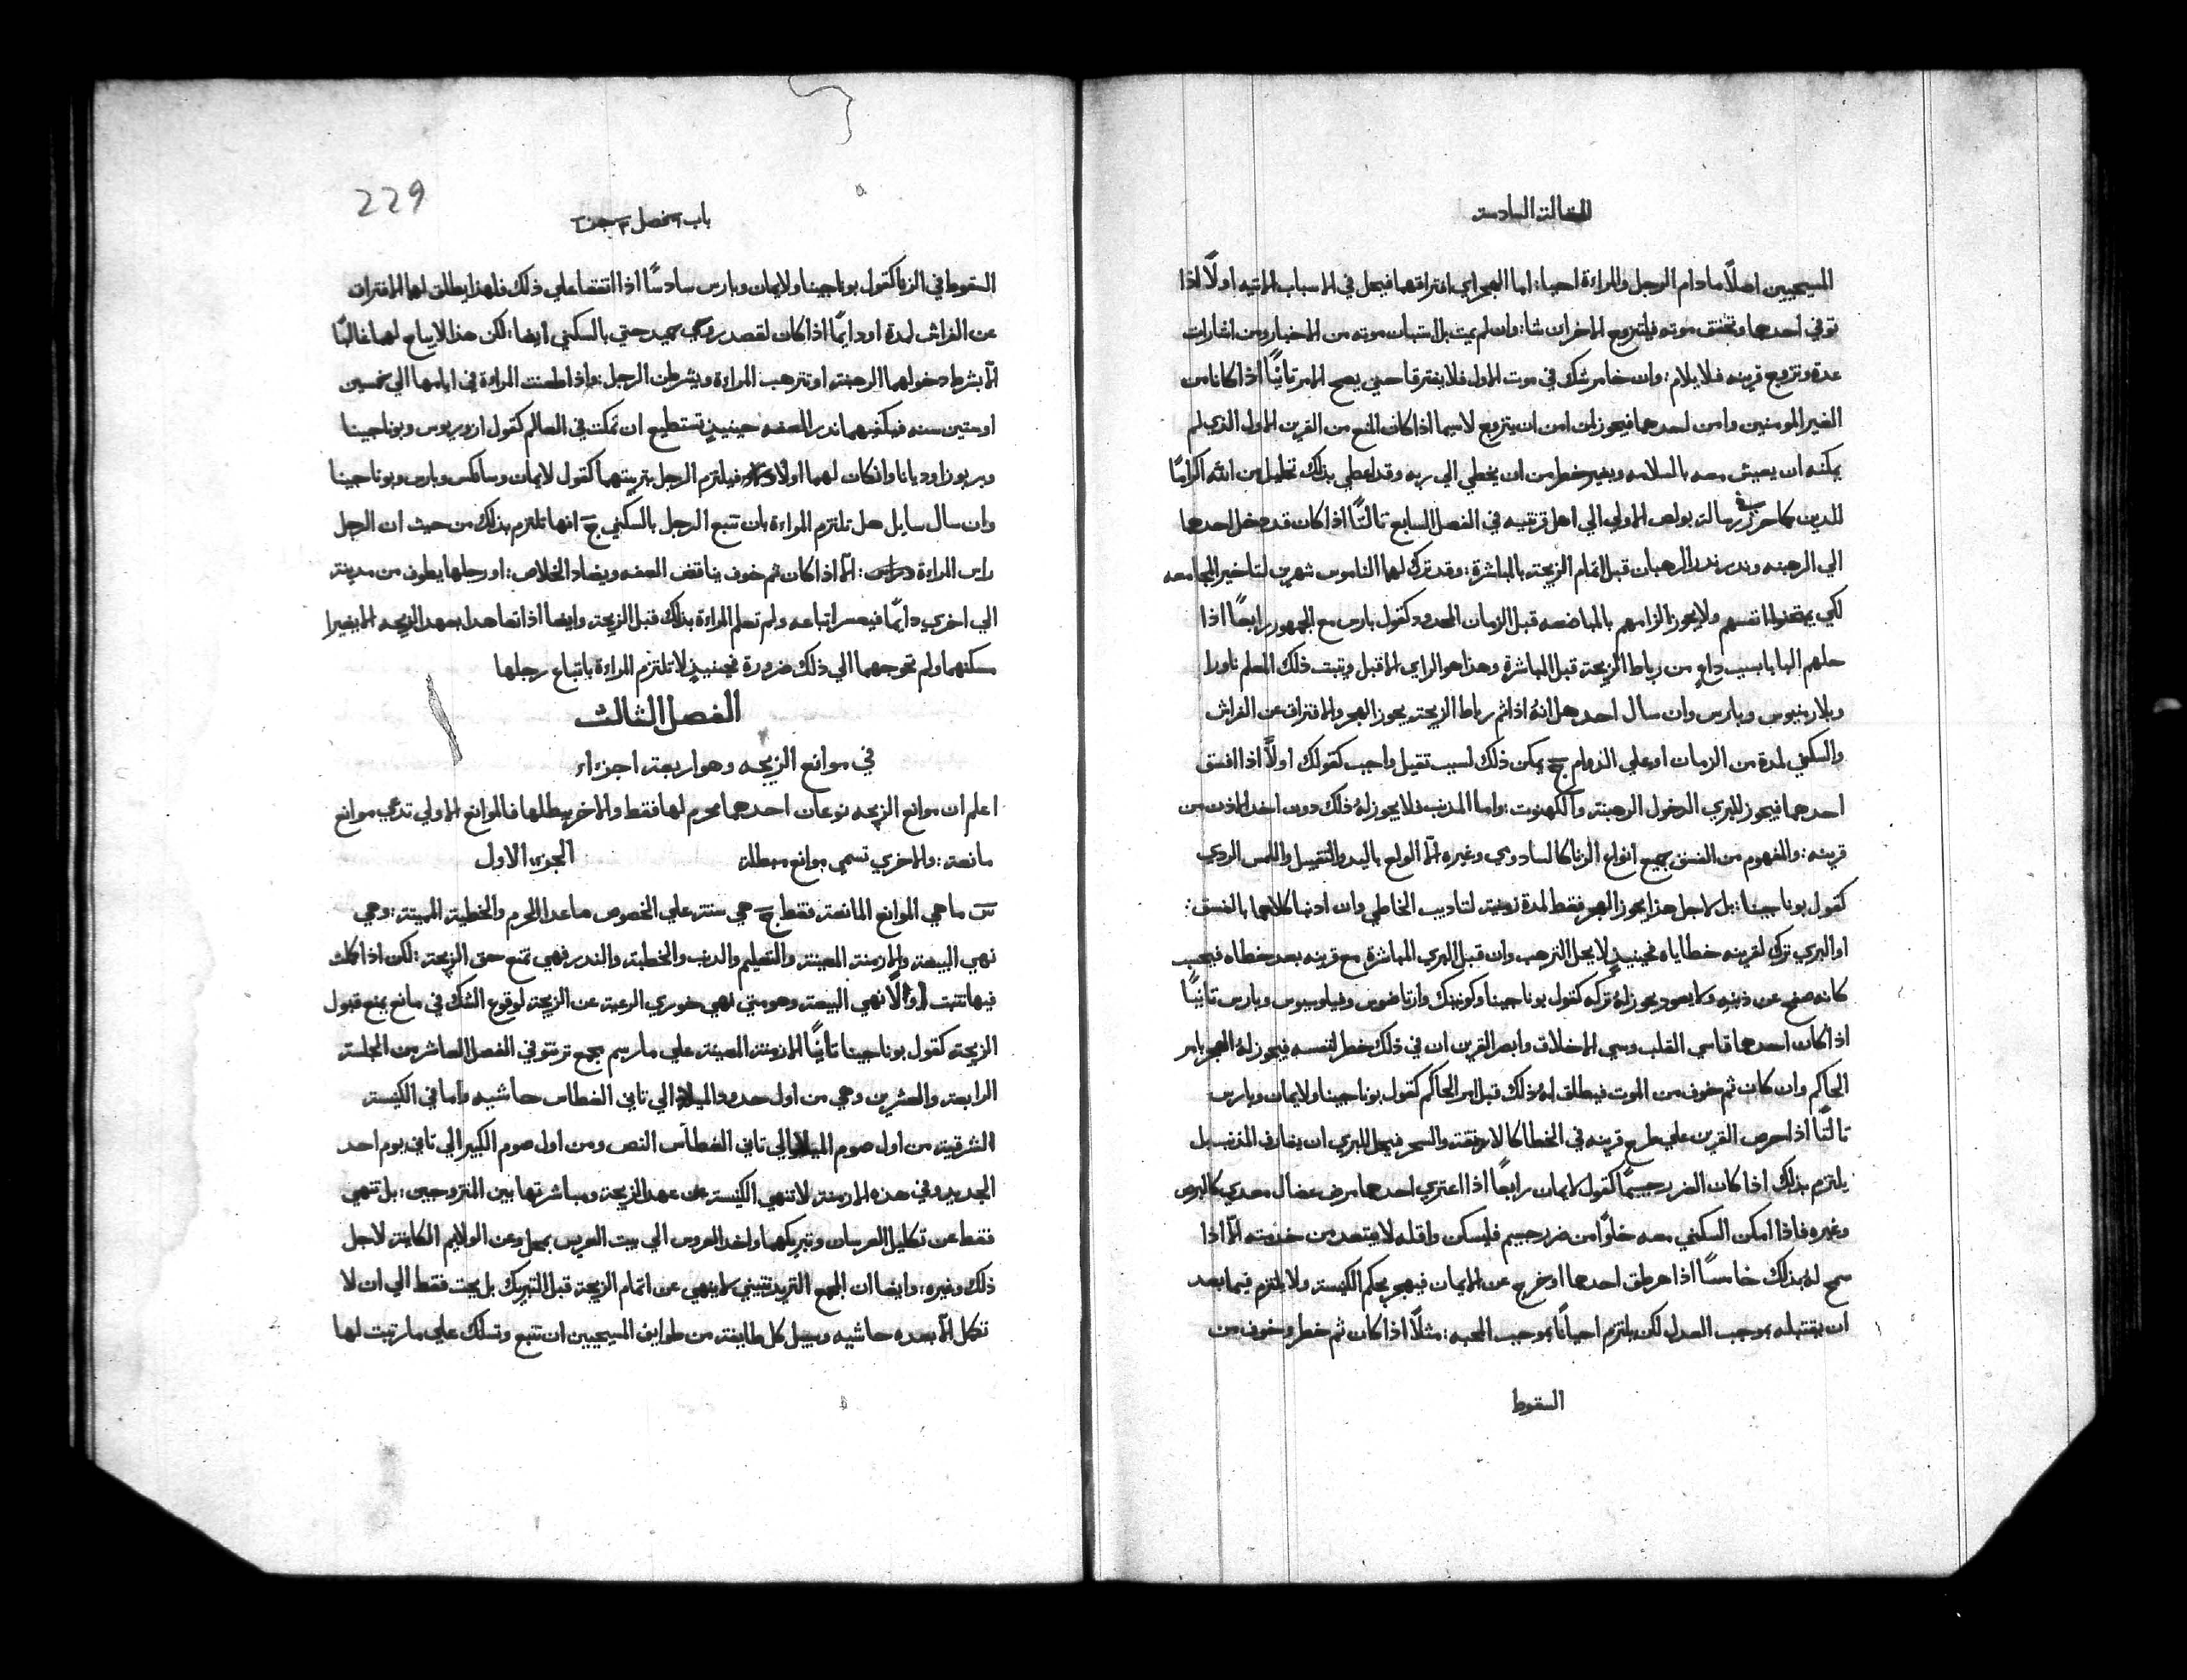 المقالة السادسة
المسيحيين اصلًا ما دام الرجل والمراءة احيا: اما الهجر اي افتراقهما فيحل في الاسباب الاتيه اولًا اذا
توفي احدهما وتحقق موته فليتزوج الاخر ان شا: وان لم يمت بل استبان موته من الاخبار ومن اشارات
عدة وتزوج قرينه فلا يلام: وان خامر شك في موت الاول فلا يفترقا حتي يصح الامر ثانيًا اذا كانا من
الغير المومنين وامن احدهما فيجوز لمن امن ان يتزوج لاسيما اذا كان المنع من القرين الاول الذي لم
يمكنه ان يعيش معه بالسلامه وبغير خطر من ان يخطي الي ربه وقد اعطي بذلك تحليل من الله اكرامًا
للدين كما حرر في رسالة بولص الاولي الي اهل قرنتيه في الفصل السابع ثالثًا اذا كان قد دخل احدهما
الي الرهبنه ونذر نذر الرهبان قبل اتمام الزيجة بالمباشرة: وقد ترك لهما الناموس شهرين لتاخير المجامعه
لكي يمتحنوا انفسهم ولا يجوز الزامهم بالمباضعه قبل الزمان المحدود كقول بارس مع الجمهور رابعًا اذا
حلهم البابا بسبب داعٍ من رباط الزيجة قبل المباشرة وهذا هو الراي الاقبل ويثبت ذلك المعلم ناورا
وبلارمينوس وبارس وان سال احد هل انهُ اذا تم رباط الزيجة يجوز الهجر والافتراق عن الفراش
والسكني لمدة من الزمان او علي الدوام ج يمكن ذلك لسبب ثقيل واجب كقولك اولًا اذا افسق
احدهما فيجوز للبري الدخول الرهبنة والكهنوت: واما المذنب فلا يجوز لهُ ذلك دون اخذ الاذن من
قرينه: والمفهوم من الفسق جميع انواع الزنا كالسادومي وغيره الّا الولع باليد والتقبيل واللمس الردي
كقول بوناجينا: بل لاجل هذا يجوز الهجر فقط لمدة زمنية لتاديب الخاطي وان اذنبا كلاهما بالفسق:
او البري ترك لقرينه خطاياه فحينيذٍ لا يحل الترهب وان قبل البري المباشرة مع قرينه بعد خطاه فيحسب
كانه صفح عن ذنبه ولا يعود يجوز لهُ تركه كقول بوناجينا وكونينك وارتاضوس وفيلوسيوس وبارس ثانيًا
اذا كان احدهما قاسي القلب وسي الاخلاق وابصر القرين ان في ذلك خطر لنفسه فيجوز لهُ الهجر بامر
الحاكم وان كان ثم خوف من الموت فيطلق لهُ ذلك قبل امر الحاكم كقول بوناجينا ولايمان وبارس
ثالثًا اذا حرص القرين علي طرح قرينه في الخطا كالارطقة والسحر فيحل للبري ان يفارق المذنب بل
يلتزم بذلك اذا كان الضرر جسيمًا كقول لايمان رابعًا اذا اعتري احدهما مرض عضال معدي كالبرص
وغيره فاذا امكن السكني معه خلوًا من ضرر جسيم فليسكن واقله لا يبتعد من خدمته الّا اذا
سمح لهُ بذلك خامسًا اذا هرطق احدهما او خرج عن الايمان فيهجر بحكم الكنيسة ولا يلتزم فيما بعد
ان يقتبله بموجب العدل لكن يلتزم احيانًا بموجب المحبه: مثلًا اذا كان ثم خطر وخوف من
السقوط
229
باب فصل جز
السقوط في الزنا كقول بوناجينا ولايمان وبارس سادسًا اذا اتفقا علي ذلك فلهذا يطلق لهما الافتراق
عن الفراش لمدة او دايمًا اذا كان لقصد روحي حميد حتي بالسكني ايضا: لكن هذا لا يباح لهما غالبًا
الّا بشرط دخولهما الرهبنة او تترهب المراءة ويشرطن الرجل: واذا طعنت المراءة في ايامها الي خمسين
او ستين سنه فيكفيهما نذر العفه حينيذٍ تستطيع ان تمكث في العالم كقول ازوريوس وبوناجينا
وبربوزا وديانا وان كان لهما اولاد فيلتزم الرجل بتربيتهما كقول لايمان وسانكس وبارس وبوناجينا
وان سال سايل هل تلتزم المراءة بان تتبع الرجل بالسكني ج انها تلتزم بذلك من حيث ان الرجل
راس المراءة: الّا اذا كان ثم خوف يناقض العفه ويضاد الخلاص: او رجلها يطوف من مدينة
الي اخري دايمًا فيعسر اتباعه ولم تعلم المراءة بذلك قبل الزيجة وايضا اذا تعاهدا بعهد الزيجه الا يغيرا
مسكنهما ولم تحوجهما الي ذلك ضرورة فحينيذٍ لا تلتزم المراءة باتباع رجلها
الفصل الثالث
في موانع الزيجه وهو اربعة اجزاء
اعلم ان موانع الزيجه نوعان احدهما محرم لها فقط والاخر يبطلها فالموانع الاولي تدعي موانع
مانعة: والاخري تسمي موانع مبطلة الجزو الاول
س ما هي الموانع المانعة فقط ج هي ستة علي الخصوص ما عدا الحرم والخطية المميتة: وهي
نهي البيعة والازمنة المعينة والتعليم والدنب والخطبة والنذر فهي تمنع حق الزيجة: لكن اذا كملت
فيها تثبت اولًا نهي البيعة وهو متي نهي خوري الرعية عن الزيجة لوقوع الشك في مانع يمنع قبول
الزيجة كقول بوناجينا ثانيًا الازمنة المعينة علي ما رسم مجمع ترنتو في الفصل العاشر من الجلسة
الرابعة والعشرين وهي من اول حدود الميلاد الي ثاني الغطاس حاشيه واما في الكنيسة
الشرقية من اول صوم الميلاد الي ثاني الغطاس النص ومن اول صوم الكبير الي ثاني يوم احد
الجديد وفي هذه الازمنة لا تنهي الكنيسة عن عهد الزيجة ومباشرتها بين المتزوجين: بل تنهي
فقط عن تكليل العرسان وتبريكهما واخذ العروس الي بيت العريس بمحل وعن الولايم الكاينة لاجل
ذلك وغيره: وايضا ان المجمع التريدنتيني لا ينهي عن اتمام الزيجة قبل التبريك بل يحث فقط الي ان لا
تكمل الّا بعده حاشيه وسبيل كل طايفة من طوايف المسيحيين ان تتبع وتسلك علي ما رتبت لها